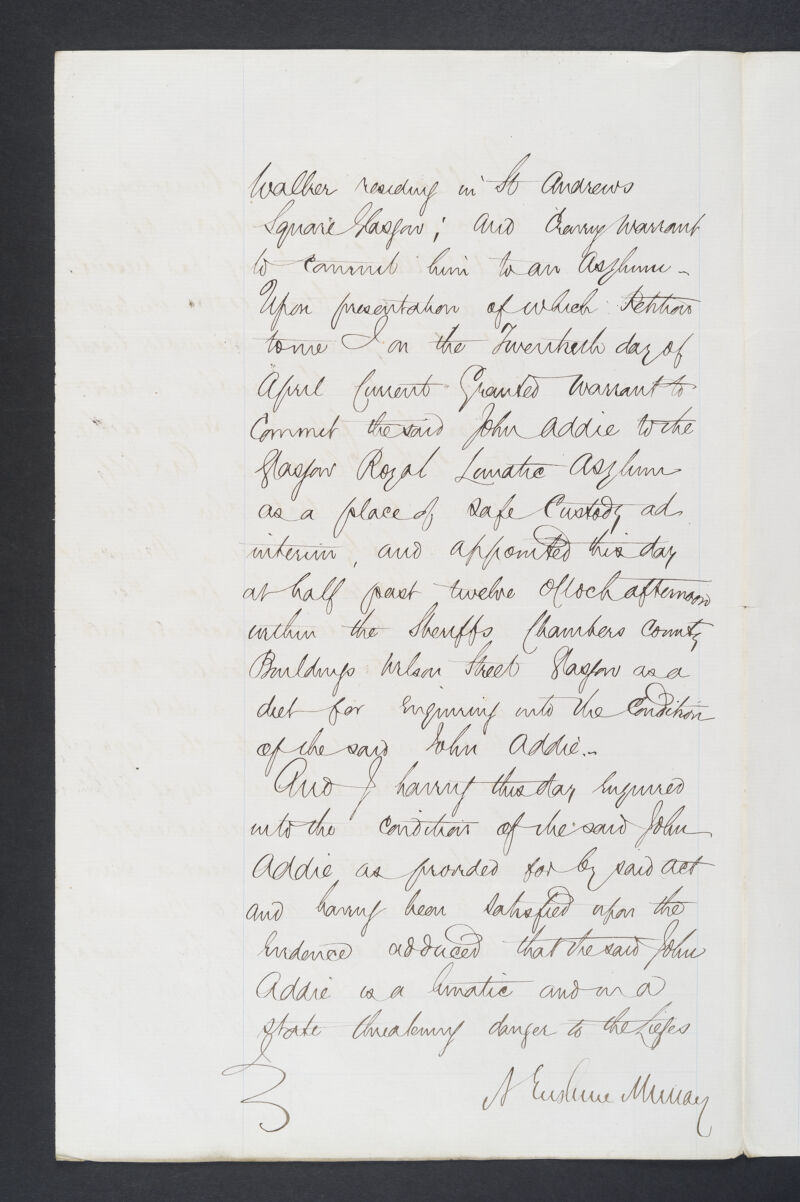 Walker residing in St Andrews
Square Glasgow; and Craving Warrant
to commit him to an Asylum –
Upon presentation of which Petition
to me I on the Twentieth day of
April Current Granted Warrant to
Commit the said John Addie to the
Glasgow Royal Lunatic Asylum
as a place of safe Custody ad
interim, and appointed this day
at half past twelve oClock afternoon
within the Sheriffs Chambers County
Buildings Wilson Street Glasgow as a
diet for enquiring into the Condition
of the said John Addie. –
And I having this day enquired
into the condition of the said John
Addie as provided for by said act
and having been satisfied upon the
Evidence adduced that the said John
Addie is a lunatic and in a
state threatening danger to the Lieges
A Erskine Murray